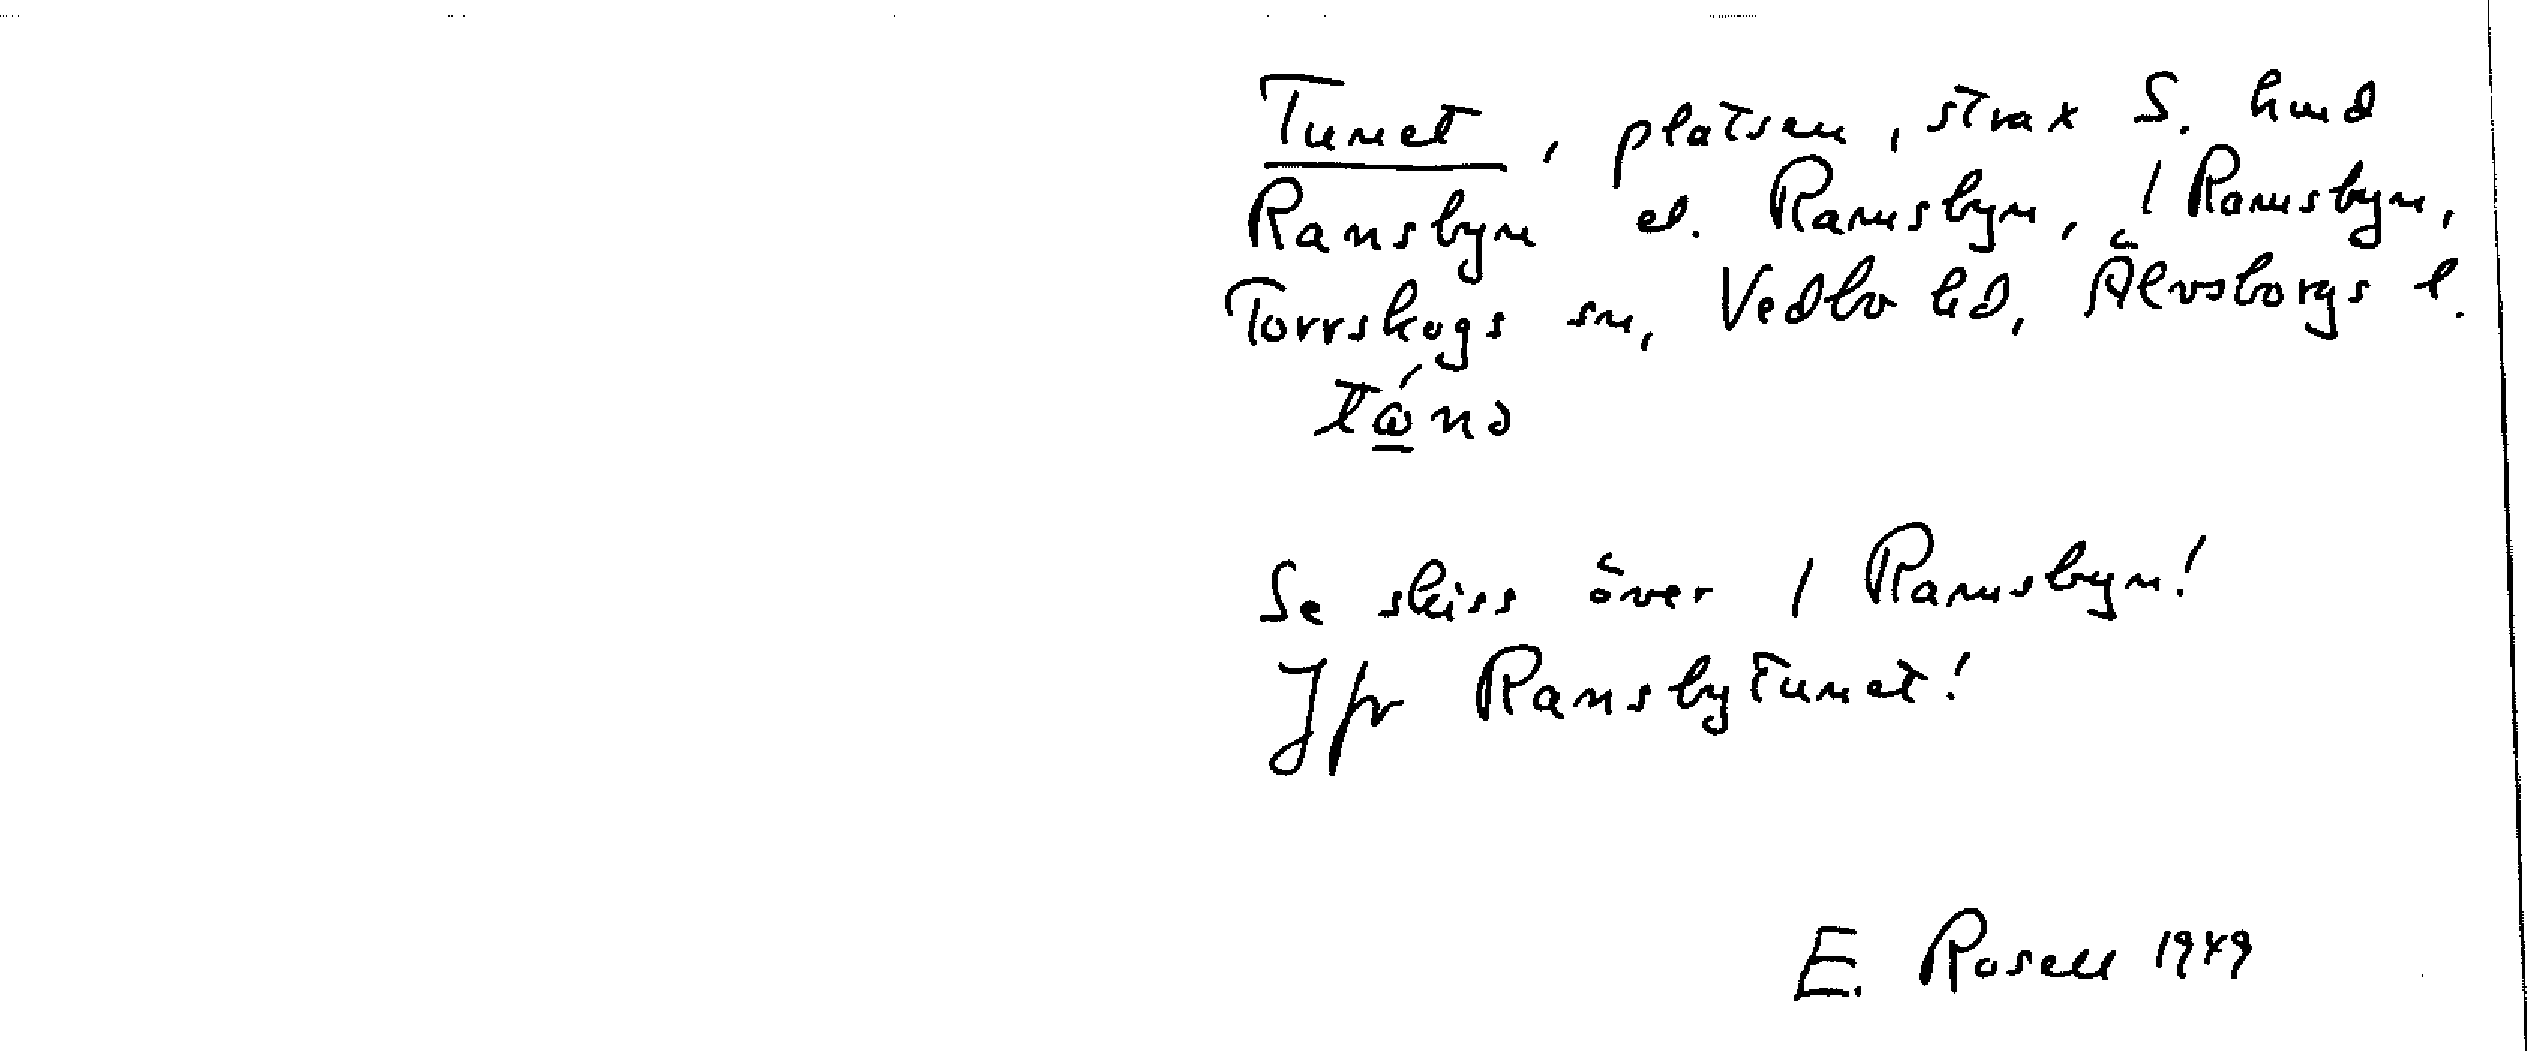 Tunet, platsen, strax S. hmd
Ransbyn el. Ramsbyn, 1 Ramsbyn,
Torrskogs sn, Vedbo hd, Älvsborgs l.
Se skiss över 1 Ramsbyn!
Jfr Ransbytunet!
E. Rosell 1949